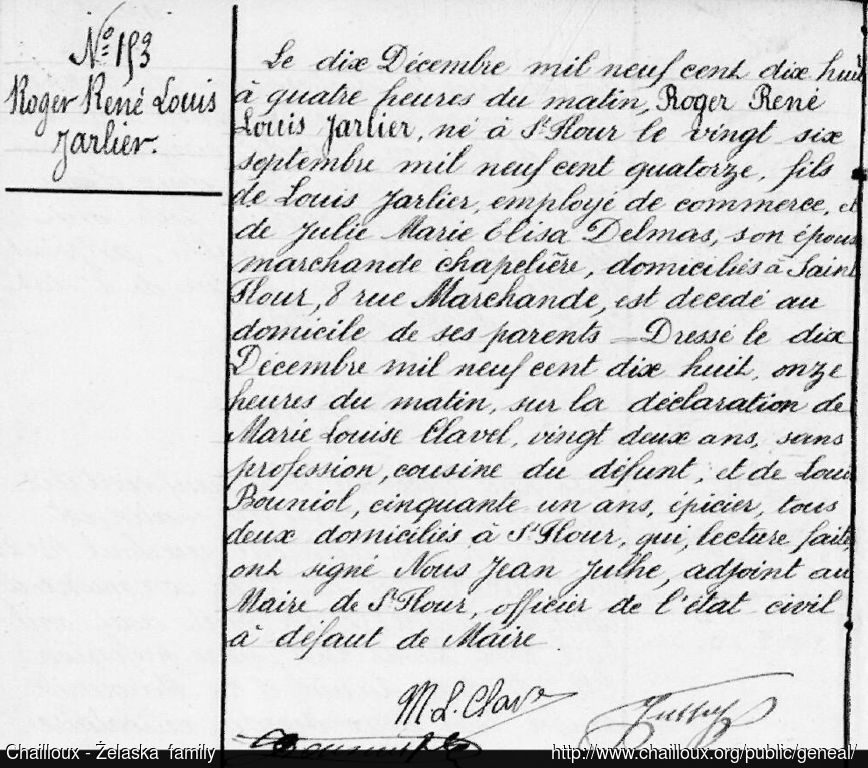 Nº 153
Roger René Louis
Jarlier.
Le dix Décembre mil neuf cent dix huit
à quatre heures du matin, Roger René
Louis Jarlier, né à St Flour le vingt six
septembre mil neuf cent quatorze, fils
de Louis Jarlier, employé de commerce, et
de Julie Marie Elisa Delmas, son épouse
marchande chapelière, domiciliés à Saint
Flour, 8 rue Marchande, est decedé au
domicile de ses parents _ Dressé le dix
Décembre mil neuf cent dix huit, onze
heures du matin, sur la déclaration de
Marie Louise Clavel, vingt deux ans, sans
profession, cousine du défunt, et de Louis
Bouniol, cinquante un ans, épicier, tous
deux domiciliés à St Flour, qui, lecture faite,
ont signé Nous Jean Julhe, adjoint au
Maire de St Flour, officier de l'état civil
à défaut de Maire.
M L. Clavel
Chailloux - Żelaska family
http://www.chailloux.org/public/geneal/